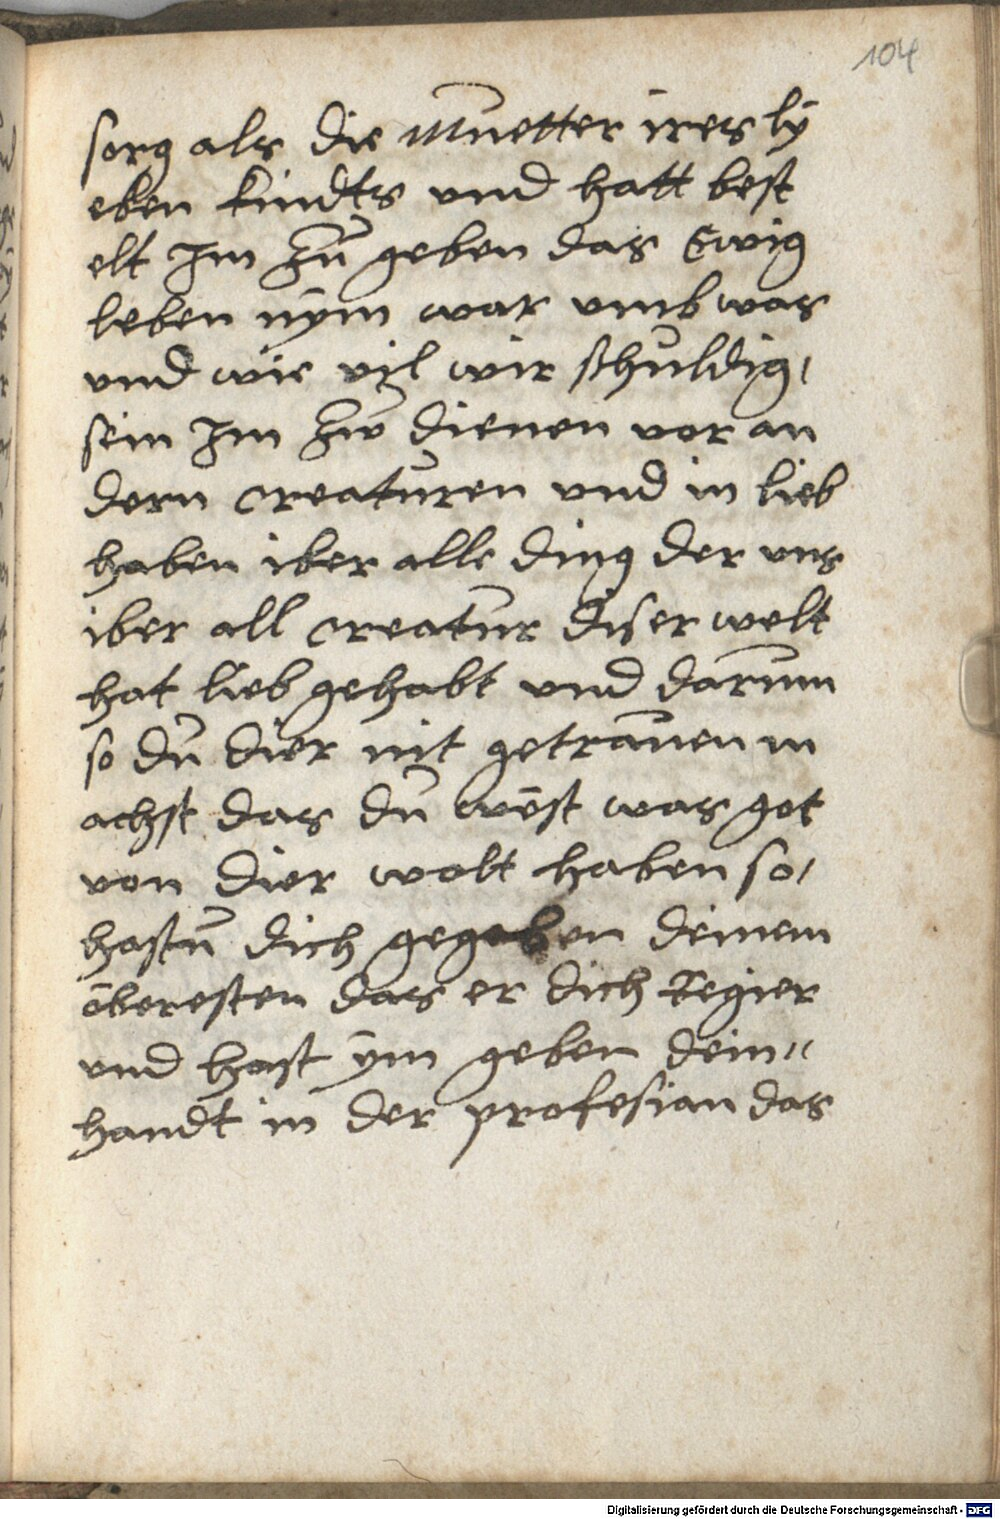 104
sorg als die Muetter ires ly
eben kindts vnd hatt best
elt Im zu geben das Ewig
leben nym war vmb was
vnd wie vil wir schuldig,
sein Im zw dienen vor an
dern creaturen vnd in lieb
haben iber alle ding der vns
iber all creatur diser welt
hat lieb gehabt vnd darum
so du dier nit getrauen m
achst das du west was got
von dier wolt haben so,
hastu dich gegeben deinem
öberesten das er dich Regier
vnd hast ym geben dein,,
handt in der profesian das
Digitalisierung gefördert durch die Deutsche Forschungsgemeinschaft - DFG